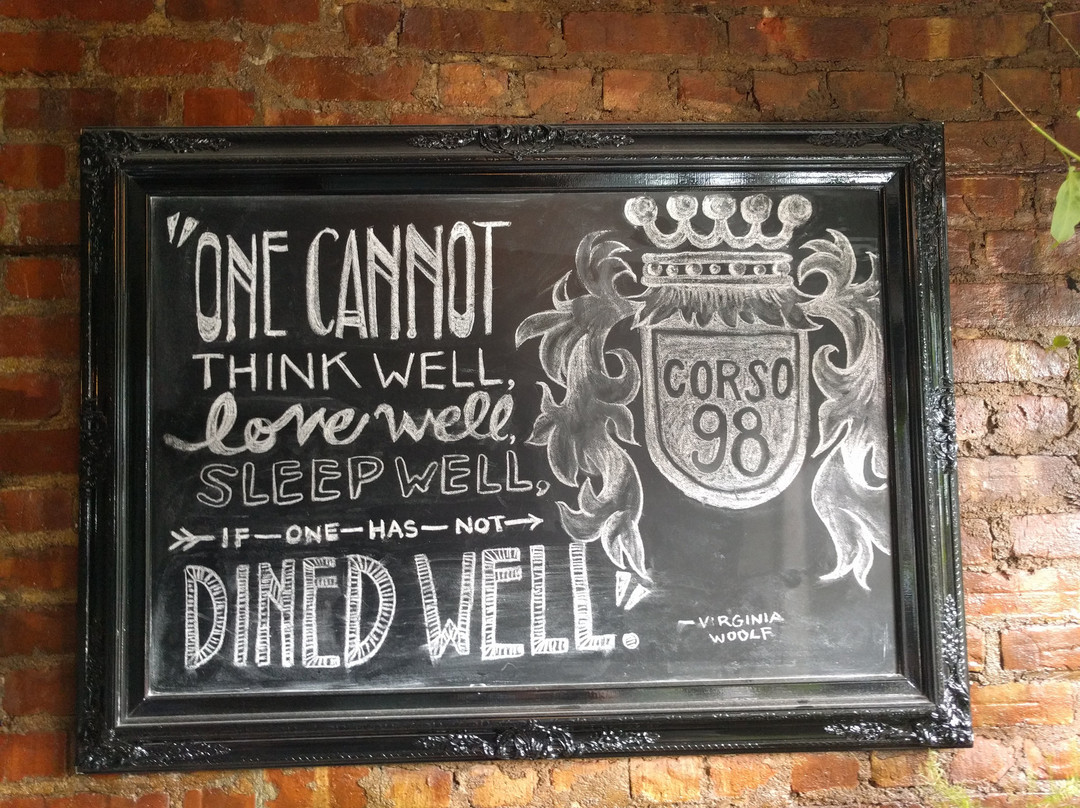 "ONE CANNOT
THINK WELL,
love well,
SLEEP WELL,
IF—ONE—HAS—NOT
DINED WELL".
CORSO
98
—VIRGINIA
WOOLF